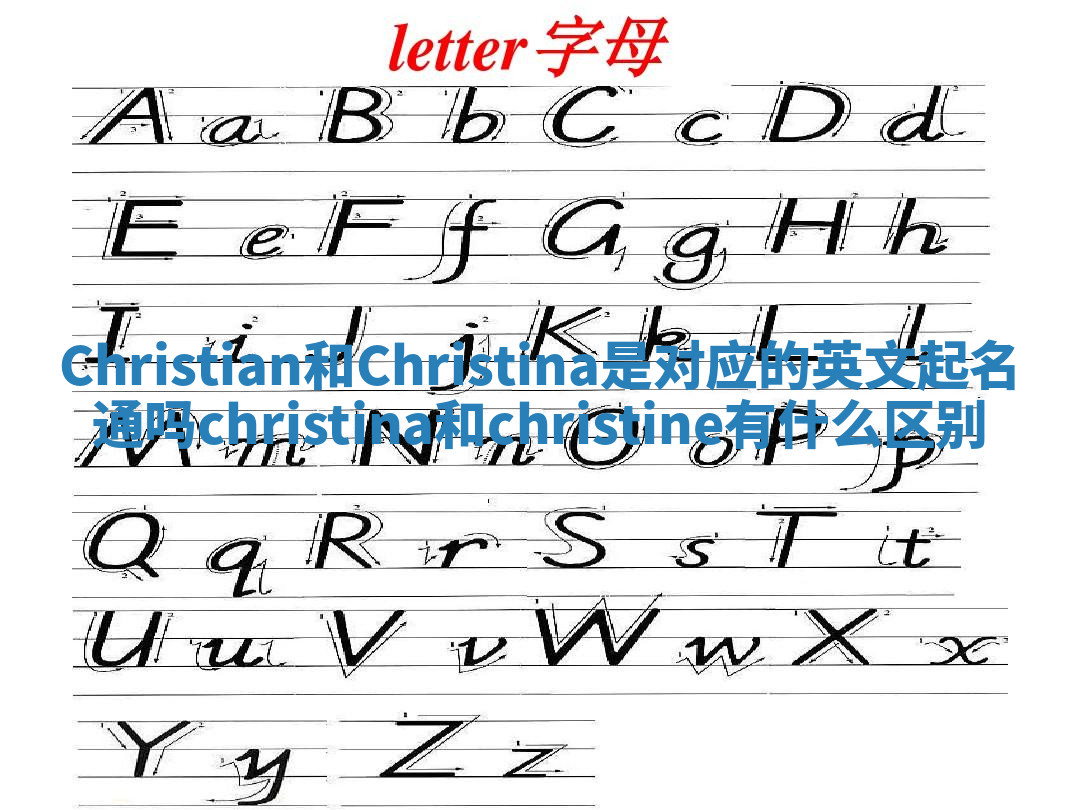 letter字母
A a B b C c D d
E e F f G g H h
I i J j K k L l
Christian和Christina是对应的英文起名
通吗christina和christine有什么区别
M m N n O o P p
Q q R r S s T t
U u V v W w X x
Y y Z z